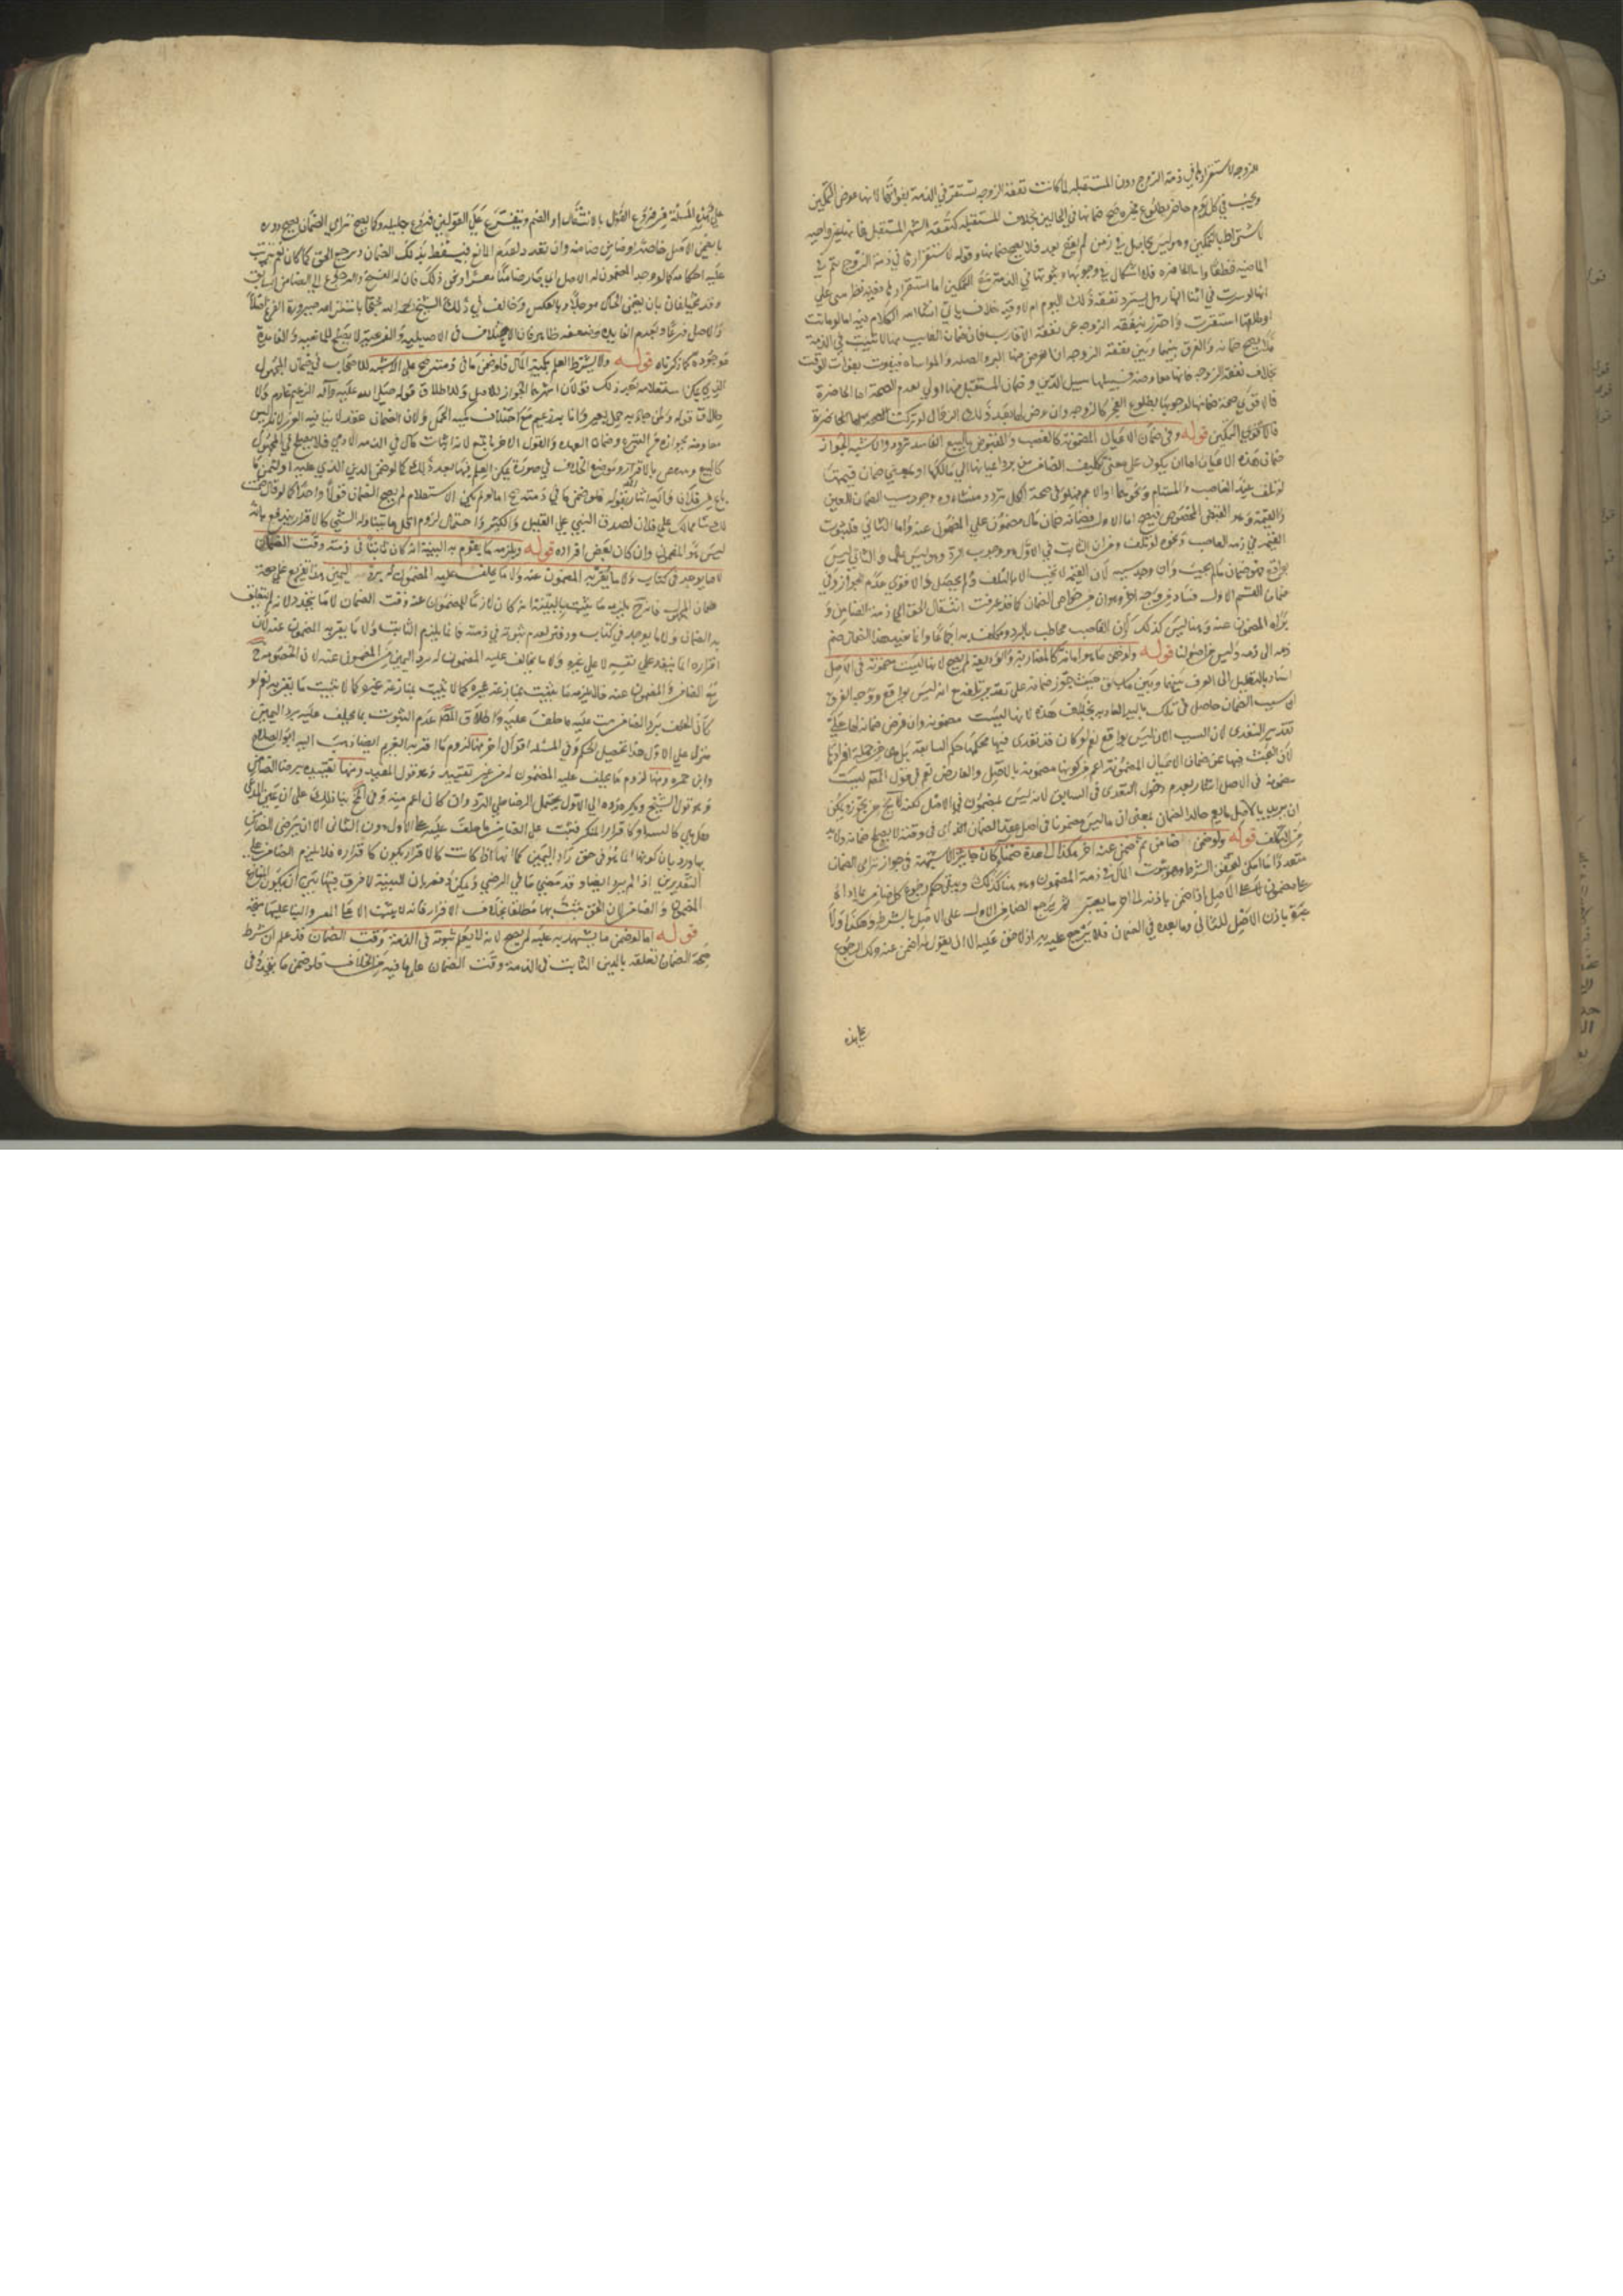 الزوجه لاستقرارها في ذمة الزوج دون المستقبله لما كانت نفقة الزوجه تستقر في الذمة بفواتها لانها عوض التمكين
وتجب في كل يوم حاضر بطلوع فجره صح ضمانها في الحالين بخلاف المستقبله كنفقة الشهر المستقبل فانها غير واجبه
لاشتراطها بالتمكين وهو ليس بحاصل في زمن لم يقع بعد فلا يصح ضمانها وقوله لاستقرارها في ذمة الزوج يتم في
الماضيه قطعا واما الحاضره فلا اشكال في وجوبها وثبوتها في الذمة مع التمكين اما استقرارها ففيه نظر مبني علي
انها لو نشزت في اثنا النهار هل يسترد نفقة ذلك اليوم ام لا وفيه خلاف ياتي انشا الله الكلام فيه اما لو ماتت
او طلقها استقرت واحترز بنفقة الزوجه عن نفقة الاقارب فان ضمان الغايب منها لا تثبت في الذمة
فلا يصح ضمانه والفرق بينها وبين نفقة الزوجه ان الغرض منها البر والصله والمواساه فتفوت بفوات الوقت
بخلاف نفقة الزوجه فانها معاوضه فسبيلها سبيل الدين وضمان المستقبل منها اولي بعدم الصحة اما الحاضرة
فالاقوي صحة ضمانها لوجوبها بطلوع الفجر كالزوجه وان عرض لها بعد ذلك الزوال لو تركت
فالاقوي التمكين قوله وفي ضمان الاعيان المضمونة كالغصب والمقبوض بالبيع الفاسد تردد والاشبه الجواز
ضمان هذه الاعيان اما ان يكون على معنى تكليف الضامن برد اعيانها الى مالكها او بمعنى ضمان قيمتها
لو تلفت عند الغاصب والمستام ونحوهما او الاعم منهما وفي صحة الكل تردد منشاوه وجود سبب الضمان للعين
والقيمة وهو القبض المخصوص فيصح اما الاول فضمانه ضمان مال مضمون علي المضمون عنه واما الثاني فلثبوت
القيمة في ذمه الغاصب ونحوه لو تلفت ومن ان الثابت في الاول هو وجوب الرد وهو ليس بمال والثاني ليس
بواقع فهو ضمان ما لم يجب وان وجد سببه لان القيمة لا تجب الا بالتلف ولم يحصل والاقوي عدم الجواز وفي
ضمان القسم الاول فساد من وجه اخر وهو ان من خواص الضمان كما قد عرفت انتقال الحق الي ذمة الضامن و
براة المضمون عنه وهنا ليس كذلك لان الغاصب مخاطب بالرد ومكلف به اجماعا وانما يفيد هذا الضمان ضم
ذمه الى ذمه وليس من اصولنا قوله ولو ضمن ما هو امانة كالمضاربة والوديعة لم يصح لانها ليست مضمونة في الاصل
اشار بالتعليل الى الفرق بينها وبين ما سبق حيث جوز ضمانه على تقدير تلفه مع انه ليس بواقع ووجه الفرق
ان سبب الضمان حاصل في تلك باليد العاديه بخلاف هذه لانها ليست مضمونه وان فرض ضمانها على
تقدير التعدي لان السبب الان ليس بواقع نعم لو كان قد تعدى فيها فحكمها حكم السابقة بل هي من جملة افرادها
لان البحث فيها عن ضمان الاعيان المضمونة اعم من كونها مضمونة بالاصل والعارض نعم في قول المصنف ليست
مضمونة في الاصل اشعار بعدم دخول التعدي في السابق لانه ليس بمضمون في الاصل
ان يريد بالاصل ما يعم حالة الضمان بمعنى ان ما ليس مضمونا في اصل عقد الضمان اي في وقته لا يصح ضمانه ولابد
من التكلف قوله ولو ضمن ضامن ثم ضمن عنه اخر هكذا الى عدة ضمنا كان جايزا لا شبهة في جواز ترامي الضمان
متعددا ما امكن لتحقق الشرط وهو ثبوت المال في ذمة المضمون وهو هنا كذلك ويبقى حكم رجوع كل ضامن بما اداه
على مضمونه لا على الاصل اذا ضمن باذنه الى اخر ما يعتبر ثم يرجع الضامن الاول على الاصل بالشرط وهكذا ولا
عبرة باذن الاصل للثاني وما بعده في الضمان فلا يرجع عليه به اذ لا حق عليه الا ان يقول له اضمن عنه ولك الرجوع
علي هذه
علي هذه المسئلة من فروع القول بالانتقال او الضم ويتفرع على القولين فروع جليله وكما يصح ترامي الضمان يصح دوره
بان يضمن الاصل ضامنه او ضامن ضامنه وان تعدد لعدم المانع فيسقط بذلك الضمان ويرجع الحق كما كان نعم يترتب
عليه احكامه كما لو وجد المضمون له الاصل الذي صار ضامنا معسرا ونحو ذلك فان له الفسخ والرجوع الى الضامن السابق
وقد يختلفان بان يضمن الحال موجلا وبالعكس وخالف في ذلك الشيخ رحمه الله محتجا باستلزامه صيرورة الفرع اصلا
والاصل فرعا وبعدم الفايدة وضعفه ظاهر فان الاختلاف في الاصليه والفرعيه لا يصلح للمانعيه والفايدة
موجودة كما ذكرناه قوله ولا يشترط العلم بكمية المال فلو ضمن ما في ذمته صح على الاشبه للاصحاب في ضمان المجهول
الذي يمكن استعلامه بعد ذلك قولان اشهرهما الجواز للاصل ولاطلاق قوله صلى الله عليه وآله الزعيم غارم ولا
طلاق قوله ولمن جاء به حمل بعير وانا به زعيم مع اختلاف كمية الحمل ولان الضمان عقد لا ينافيه الغرر لانه ليس
معاوضه لجوازه من المتبرع وضمان العهدة والقول الاخر بالمنع لانه اثبات مال في الذمه لآدمي فلا يصح في المجهول
كالبيع وينتقض بالاقرار وموضع الخلاف في صورة يمكن العلم فيها بعد ذلك كما لو ضمن الدين الذي عليه او ثمن ما
باع من فلان واليه اشار بقوله فلو ضمن ما في ذمته صح اما لو لم يمكن الاستعلام لم يصح الضمان قولا واحدا كما لو قال ضمنت
لك شيئا مما لك على فلان لصدق الشي علي القليل والكثير واحتمال لزوم اقل ما يتناوله الشي كالاقرار يندفع بانه
ليس هو المضمون وان كان بعض افراده قوله ويلزمه ما يقوم به البينة انه كان ثابتا في ذمته وقت الضمان
لا ما يوجد في كتاب ولا ما يقر به المضمون عنه ولا ما يحلف عليه المضمون له برد اليمين هذا تفريع علي صحة
ضمان المجهول فانه ح يلزمه ما يثبت بالبينة انه كان لازما للمضمون عنه وقت الضمان لا ما يتجدد لانه لم يتعلق
به الضمان ولا ما يوجد في كتاب ودفتر لعدم ثبوته في ذمته فانما يلزم الثابت ولا ما يقر به المضمون عنه لان
اقراره انما ينفذ علي نفسه لا علي غيره ولا ما يحلف عليه المضمون له برد اليمين من المضمون عنه لان الخصومة ح
مع الضامن والمضمون عنه فلا يلزمه ما يثبت بمنازعة غيره كما لا يثبت ما يقر به نعم لو
كان الحلف برد الضامن ثبت عليه ما حلف عليه واطلاق المص عدم الثبوت بما يحلف عليه برد اليمين
منزل على الاول هذا تفصيل الحكم وفي المسئلة اقوال اخر منها لزوم ما اقر به الغريم ايضا ذهب اليه ابو الصلاح
وابن حمزه ومنها لزوم ما يحلف عليه المضمون له من غير تقييد وهو قول المفيد ومنها تقييده برضا الضامن
وهو قول الشيخ
التقديرين اذا لم يرد ايضا وقد مضي ما في الرضي ويمكن دفعه بان البينة لا فرق فيها بين ان يكون المنازع
المضمون والضامن لان الحق يثبت بها مطلقا بخلاف الاقرار فانه لا يثبت الا على المقر والبنا عليهما متجه
قوله اما لو ضمن ما يشهد به عليه لم يصح لانه لا يعلم ثبوته في الذمة وقت الضمان قد علم ان شرط
صحة الضمان تعلقه بالدين الثابت في الذمة وقت الضمان علي ما فيه من الخلاف فلو ضمن ما يوجد في